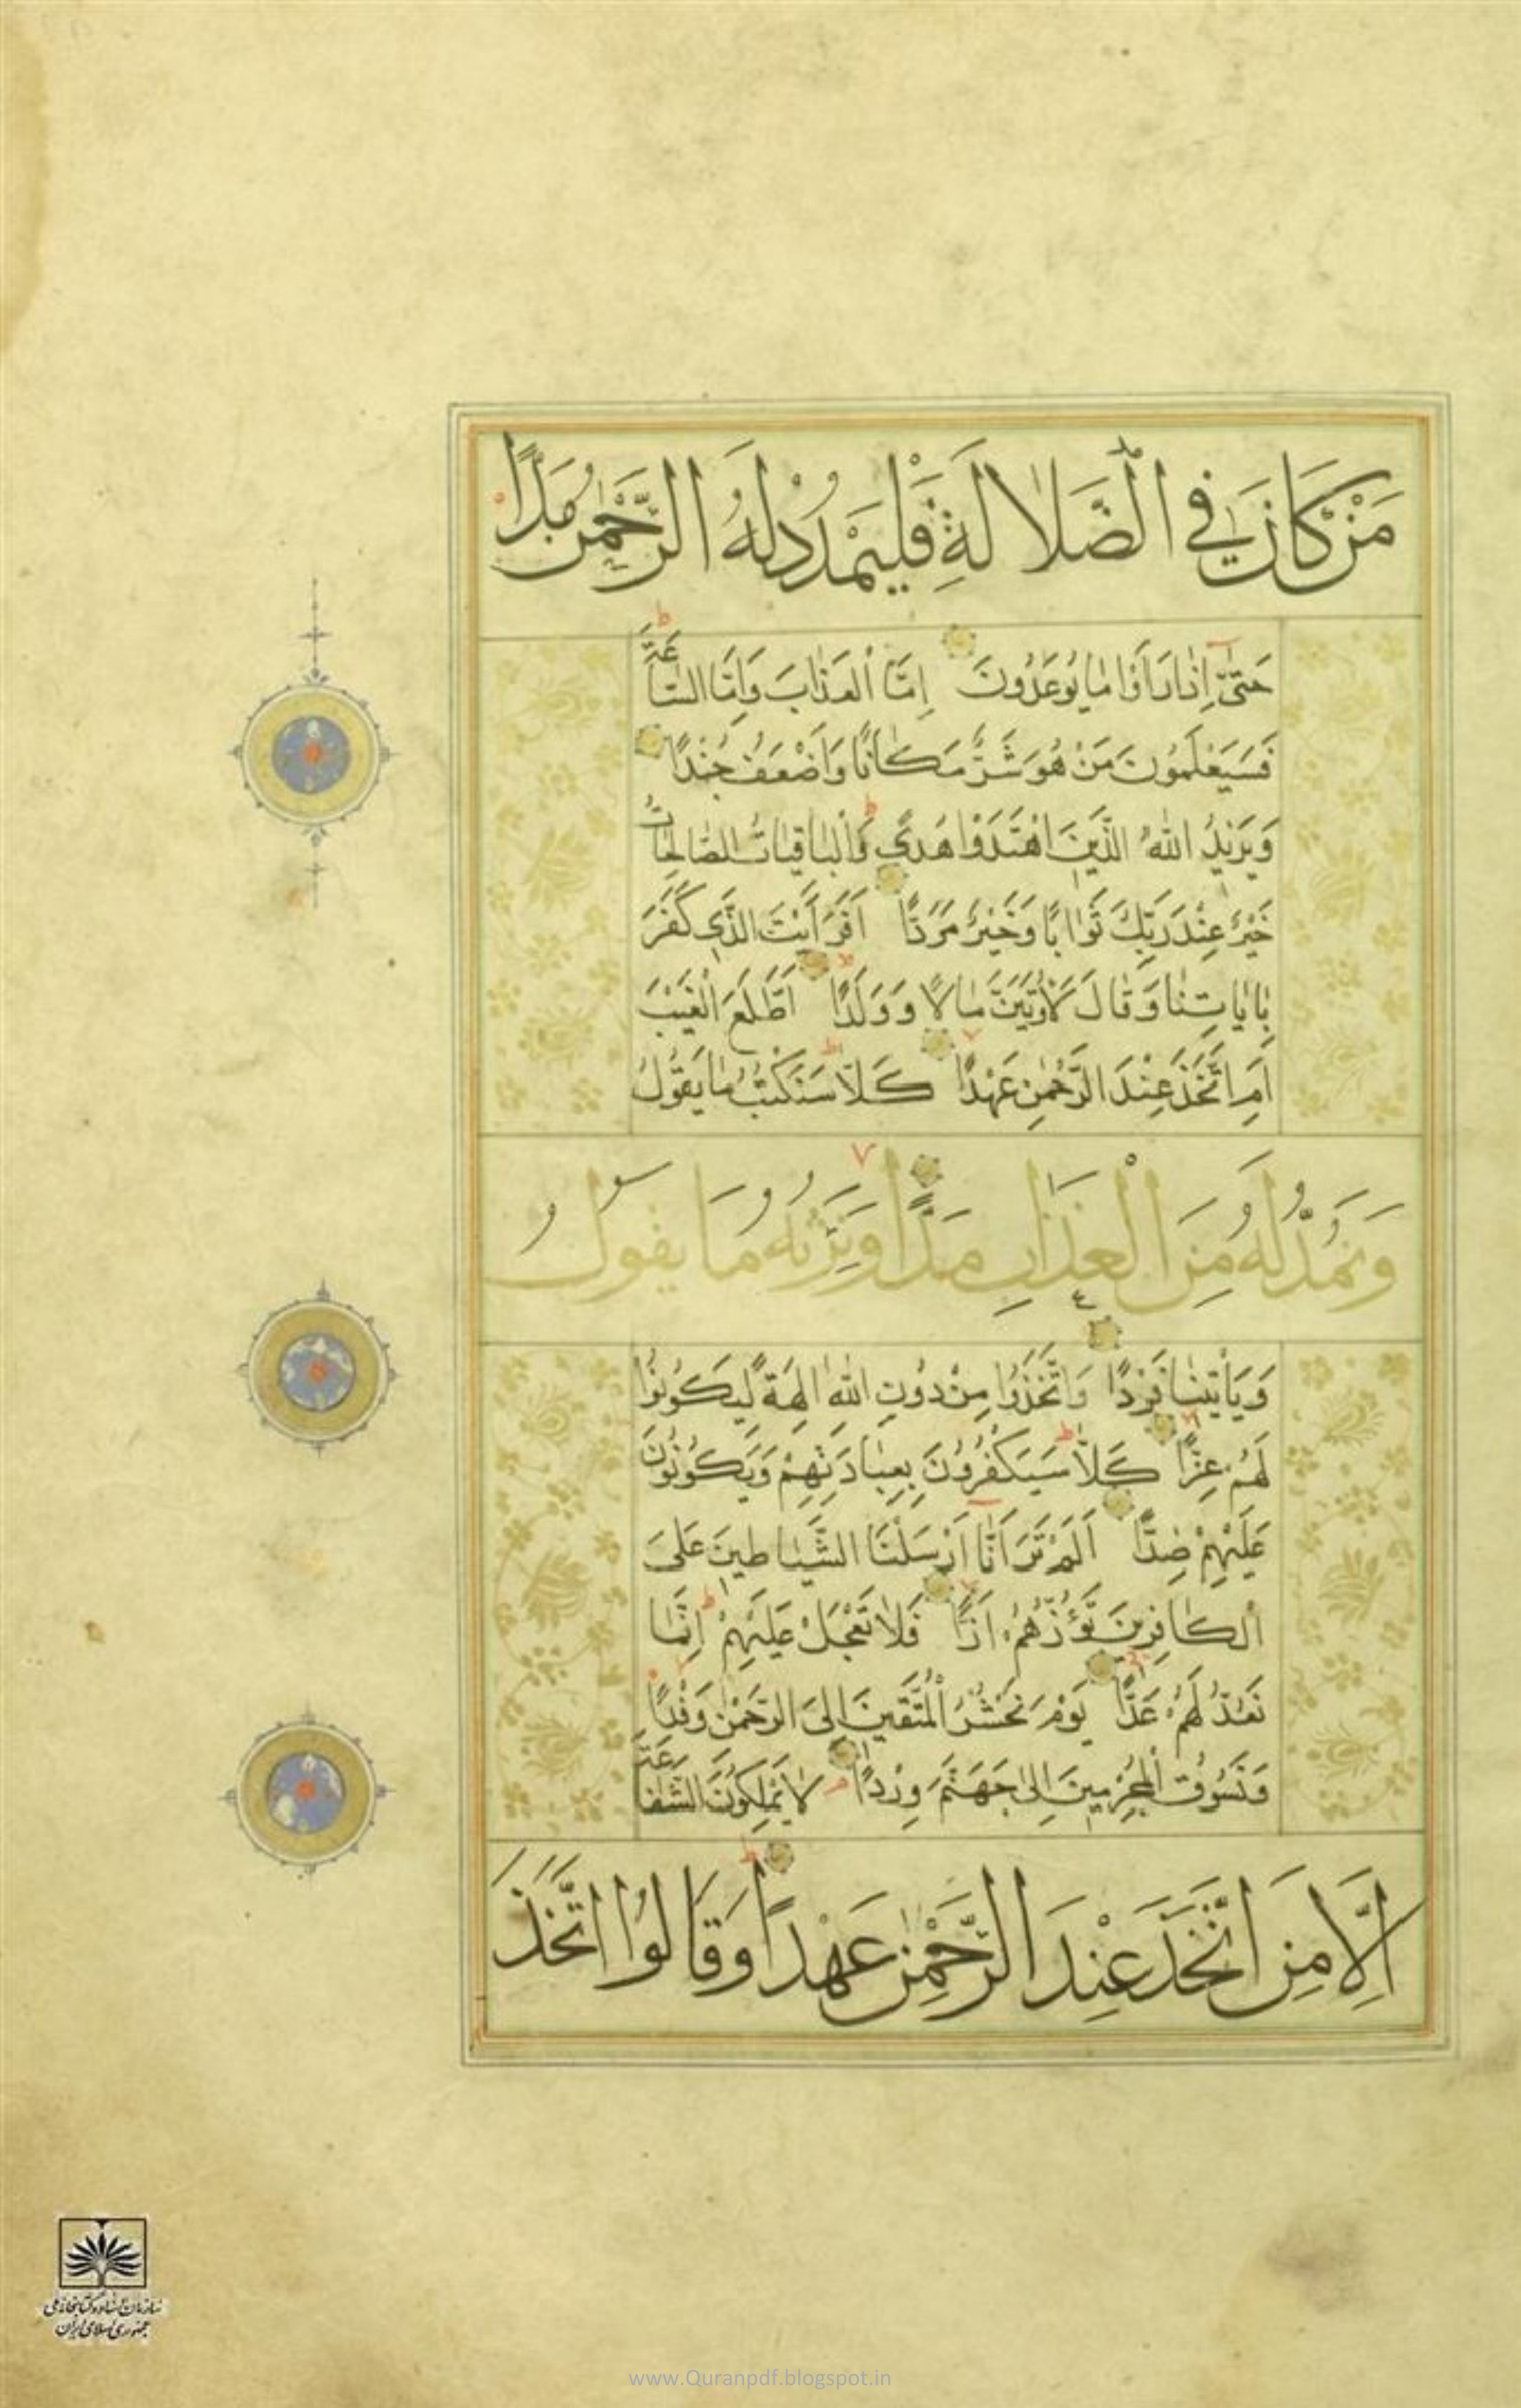 مَنْ كَانَ فِي الضَّلَالَةِ فَلْيَمْدُدْ لَهُ الرَّحْمٰنُ مَدًّا
حَتّٰى إِذَا رَأَوْا مَا يُوعَدُونَ إِمَّا الْعَذَابَ وَإِمَّا السَّاعَةَ
فَسَيَعْلَمُونَ مَنْ هُوَ شَرٌّ مَكَانًا وَأَضْعَفُ جُنْدًا
وَيَزِيدُ اللّٰهُ الَّذِينَ اهْتَدَوْا هُدًى وَالْبَاقِيَاتُ الصَّالِحَاتُ
خَيْرٌ عِنْدَ رَبِّكَ ثَوَابًا وَخَيْرٌ مَرَدًّا أَفَرَأَيْتَ الَّذِي كَفَرَ
بِآيَاتِنَا وَقَالَ لَأُوتَيَنَّ مَالًا وَوَلَدًا أَطَّلَعَ الْغَيْبَ
أَمِ اتَّخَذَ عِنْدَ الرَّحْمٰنِ عَهْدًا كَلَّا سَنَكْتُبُ مَا يَقُولُ
وَنَمُدُّ لَهُ مِنَ الْعَذَابِ مَدًّا وَنَرِثُهُ مَا يَقُولُ
وَيَأْتِينَا فَرْدًا وَاتَّخَذُوا مِنْ دُونِ اللّٰهِ آلِهَةً لِيَكُونُوا
لَهُمْ عِزًّا كَلَّا سَيَكْفُرُونَ بِعِبَادَتِهِمْ وَيَكُونُونَ
عَلَيْهِمْ ضِدًّا أَلَمْ تَرَ أَنَّا أَرْسَلْنَا الشَّيَاطِينَ عَلَى
الْكَافِرِينَ تَؤُزُّهُمْ أَزًّا فَلَا تَعْجَلْ عَلَيْهِمْ إِنَّمَا
نَعُدُّ لَهُمْ عَدًّا يَوْمَ نَحْشُرُ الْمُتَّقِينَ إِلَى الرَّحْمٰنِ وَفْدًا
وَنَسُوقُ الْمُجْرِمِينَ إِلٰى جَهَنَّمَ وِرْدًا لَا يَمْلِكُونَ الشَّفَاعَةَ
إِلَّا مَنِ اتَّخَذَ عِنْدَ الرَّحْمٰنِ عَهْدًا وَقَالُوا اتَّخَذَ
سازمان اسناد و کتابخانه ملی
جمهوری اسلامی ایران
www.Quranpdf.blogspot.in